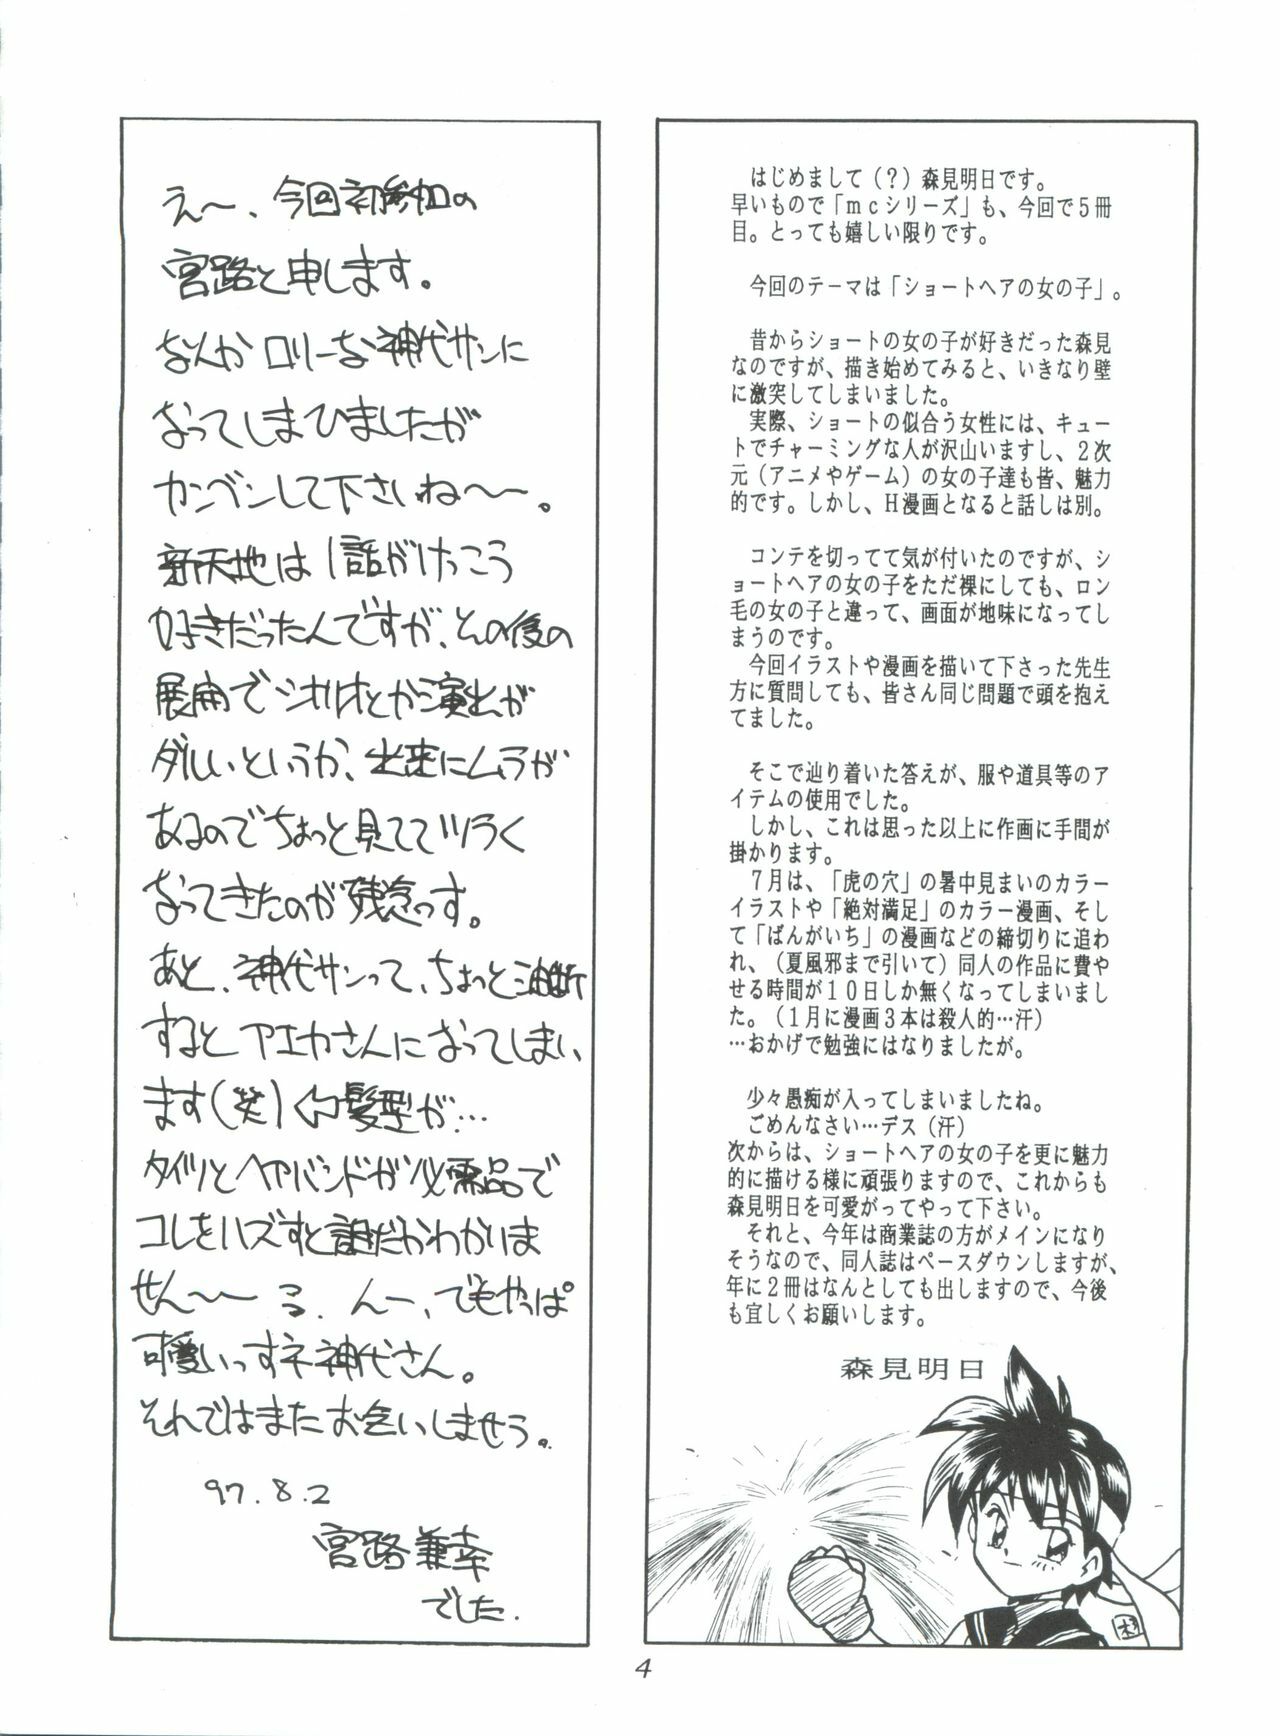 はじめまして(？)森見明日です。
早いもので「mcシリーズ」も、今回で5冊
目。とっても嬉しい限りです。
今回のテーマは「ショートヘアの女の子」。
昔からショートの女の子が好きだった森見
なのですが、描き始めてみると、いきなり壁
に激突してしまいました。
実際、ショートの似合う女性には、キュー
トでチャーミングな人が沢山いますし、2次
元(アニメやゲーム)の女の子達も皆、魅力
的です。しかし、H漫画となると話しは別。
コンテを切ってて気が付いたのですが、シ
ョートヘアの女の子をただ裸にしても、ロン
毛の女の子と違って、画面が地味になってし
まうのです。
今回イラストや漫画を描いて下さった先生
方に質問しても、皆さん同じ問題で頭を抱え
てました。
そこで辿り着いた答えが、服や道具等のア
イテムの使用でした。
しかし、これは思った以上に作画に手間が
掛かります。
7月は、「虎の穴」の暑中見まいのカラー
イラストや「絶対満足」のカラー漫画、そし
て「ばんがいち」の漫画などの締切りに追わ
れ、(夏風邪まで引いて)同人の作品に費や
せる時間が10日しか無くなってしまいまし
た。(1月に漫画3本は殺人的…汗)
…おかげで勉強にはなりましたが。
少々愚痴が入ってしまいましたね。
ごめんなさい…デス(汗)
次からは、ショートヘアの女の子を更に魅力
的に描ける様に頑張りますので、これからも
森見明日を可愛がってやって下さい。
それと、今年は商業誌の方がメインになり
そうなので、同人誌はペースダウンしますが、
年に2冊はなんとしても出しますので、今後
も宜しくお願いします。
森見明日
え〜、今回初参加の
宮路と申します。
なんかロリーな神代サンに
なってしまひましたが
カンベンして下さいね〜〜。
新天地は1話がけっこう
好きだったんですが、その後の
展開でシナリオとか演出が
ダルいというか、出来にムラが
あるのでちょっと見ててツラく
なってきたのが残念っす。
あと、神代サンって、ちょっと油断
するとアエカさんになってしまい
ます(笑)⇦髪型が…
タイツとヘアバンドが必需品で
コレをハズすと誰だかわかりま
せん〜〜 んー、でもやっぱ
可愛いっすネ神代さん。
それではまたお会いしませう。
97.8.2
宮路兼幸
でした.
4